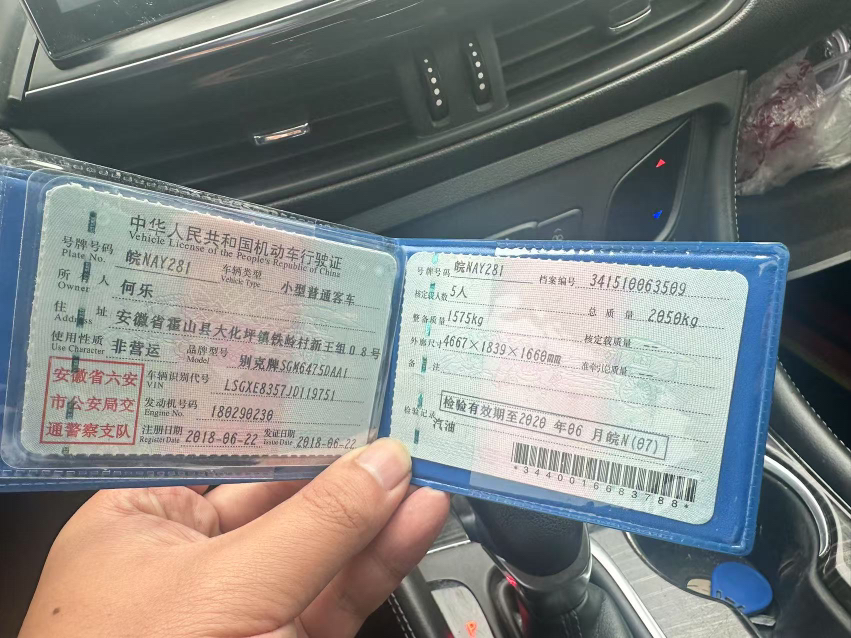 中华人民共和国机动车行驶证
Vehicle License of the People's Republic of China
号牌号码 皖NAY281 车辆类型 小型普通客车
Plate No. Vehicle Type
所有人 何乐
Owner
住址 安徽省霍山县大化坪镇铁岭村新王组08号
Address
使用性质 非营运 品牌型号 别克牌SGM6475DAA1
Use Character Model
安徽省六安
市公安局交
通警察支队
车辆识别代号 LSGXE8357JD119751
VIN
发动机号码 180290230
Engine No.
注册日期 2018-06-22 发证日期 2018-06-22
Register Date Issue Date
号牌号码 皖NAY281 档案编号 341510063509
核定载人数 5人 总质量 2050kg
整备质量 1575kg 核定载质量 --
外廓尺寸 4667×1839×1660mm 准牵引总质量 --
备注
检验有效期至2020年06月皖N(07)
检验记录
汽油
*3440016683788*